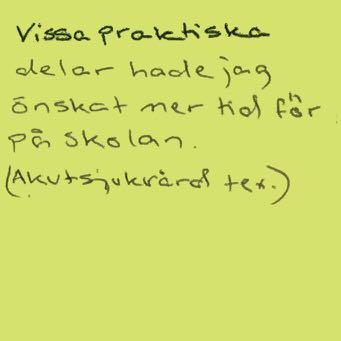 Vissa praktiska
delar hade jag
önskat mer tid för
på skolan.
(Akutsjukvård tex.)